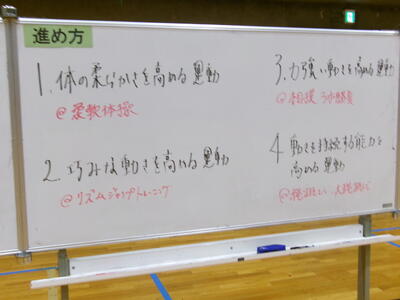 進め方
1. 体の柔らかさを高める運動
@ 柔軟体操
2. 巧みな動きを高める運動
@ リズムジャンプトレーニング
3. 力強い動きを高める運動
@ 相撲
4. 動きを持続する能力を
高める運動
@ 縄跳び、大縄跳び